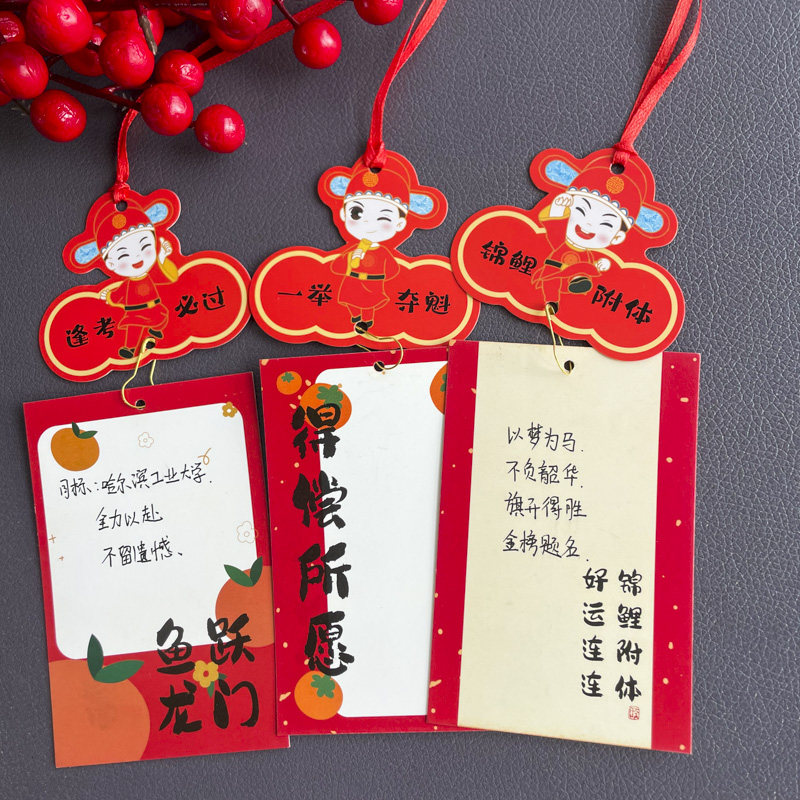 逢考 必过
一举 夺魁
锦鲤 附体
目标：哈尔滨工业大学.
全力以赴
不留遗憾、
鱼跃
龙门
得偿所愿
以梦为马.
不负韶华.
旗开得胜
金榜题名.
锦鲤附体
好运连连